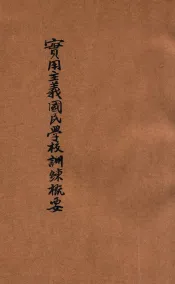 實用主義國民學校訓練概要